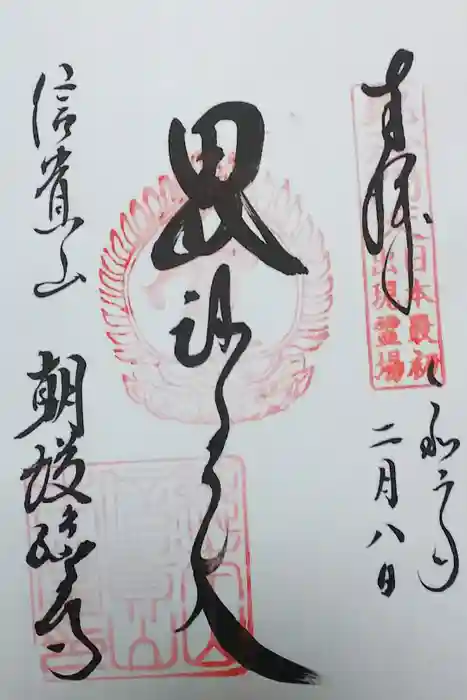 奉拝
令和二年
二月八日
毘沙門天
信貴山
朝護孫子寺
日本最初
出現霊場